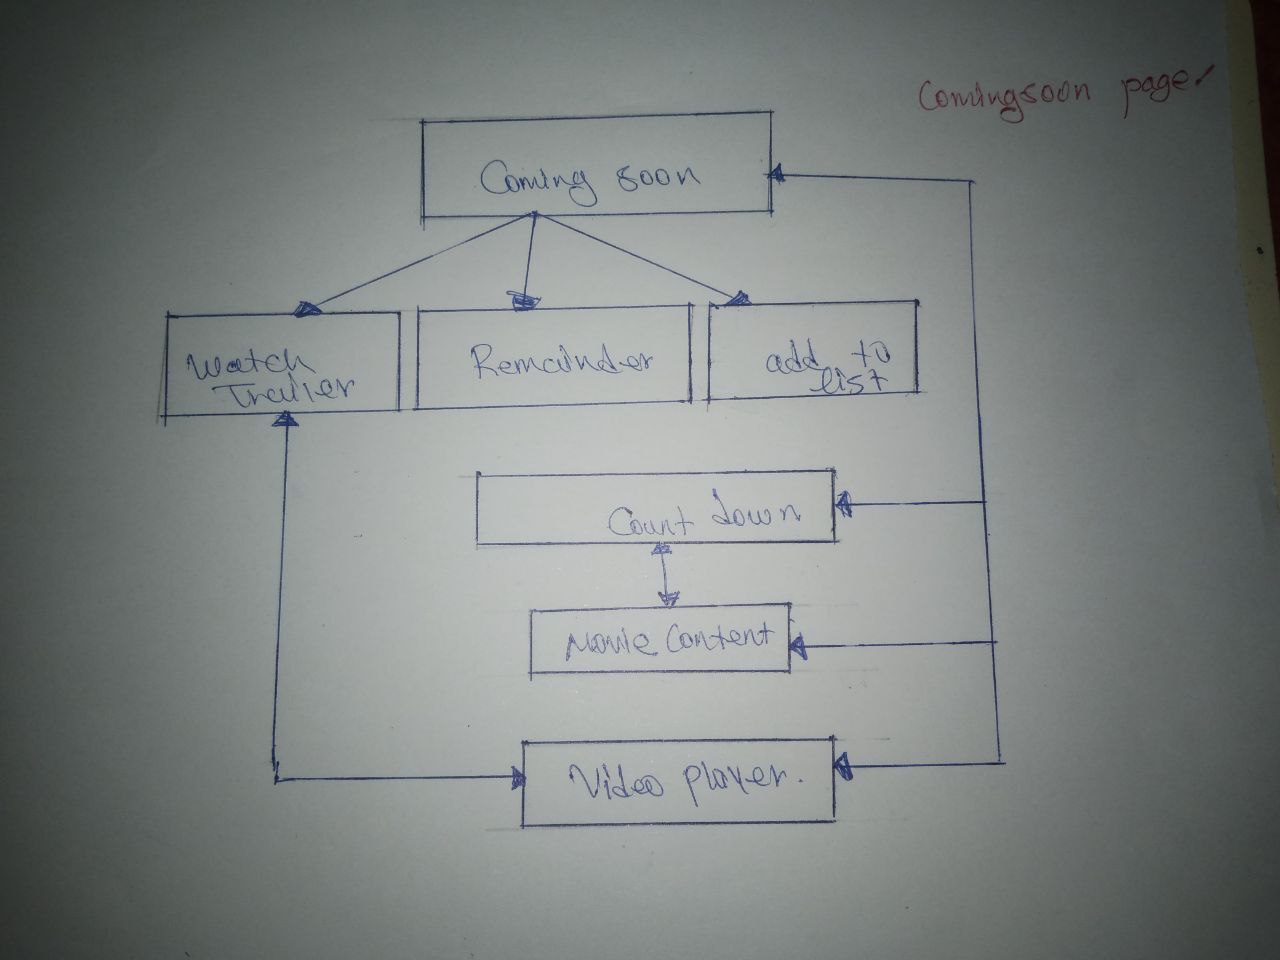 Comingsoon page
Coming soon
Watch
Trailer
Remainder
add to
list
Count down
Movie Content
Video player.